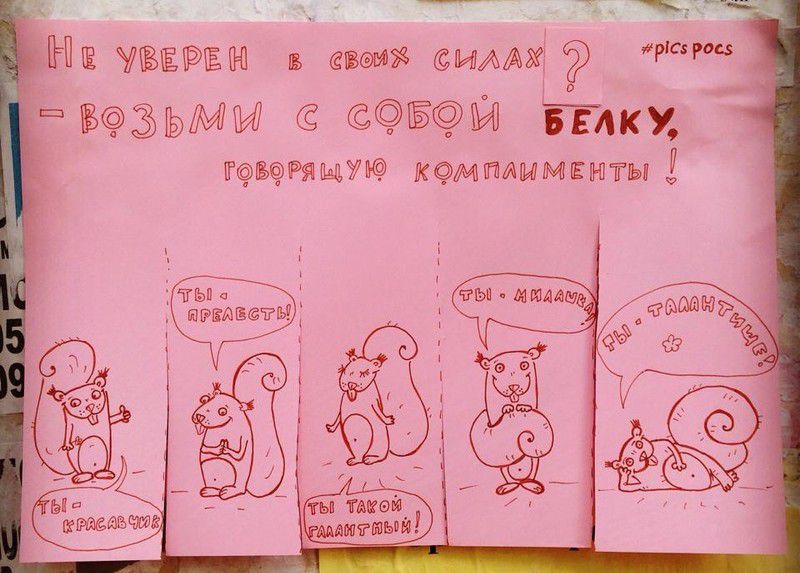 Не уверен в своих силах?
#picspocs
- возьми с собой БЕЛКУ,
говорящую комплименты!
ТЫ -
ПРЕЛЕСТЬ!
ТЫ - МИЛАШКА!
ТЫ - ТАЛАНТИЩЕ!
ТЫ -
КРАСАВЧИК
ТЫ ТАКОЙ
ГАЛАНТНЫЙ!
05
09